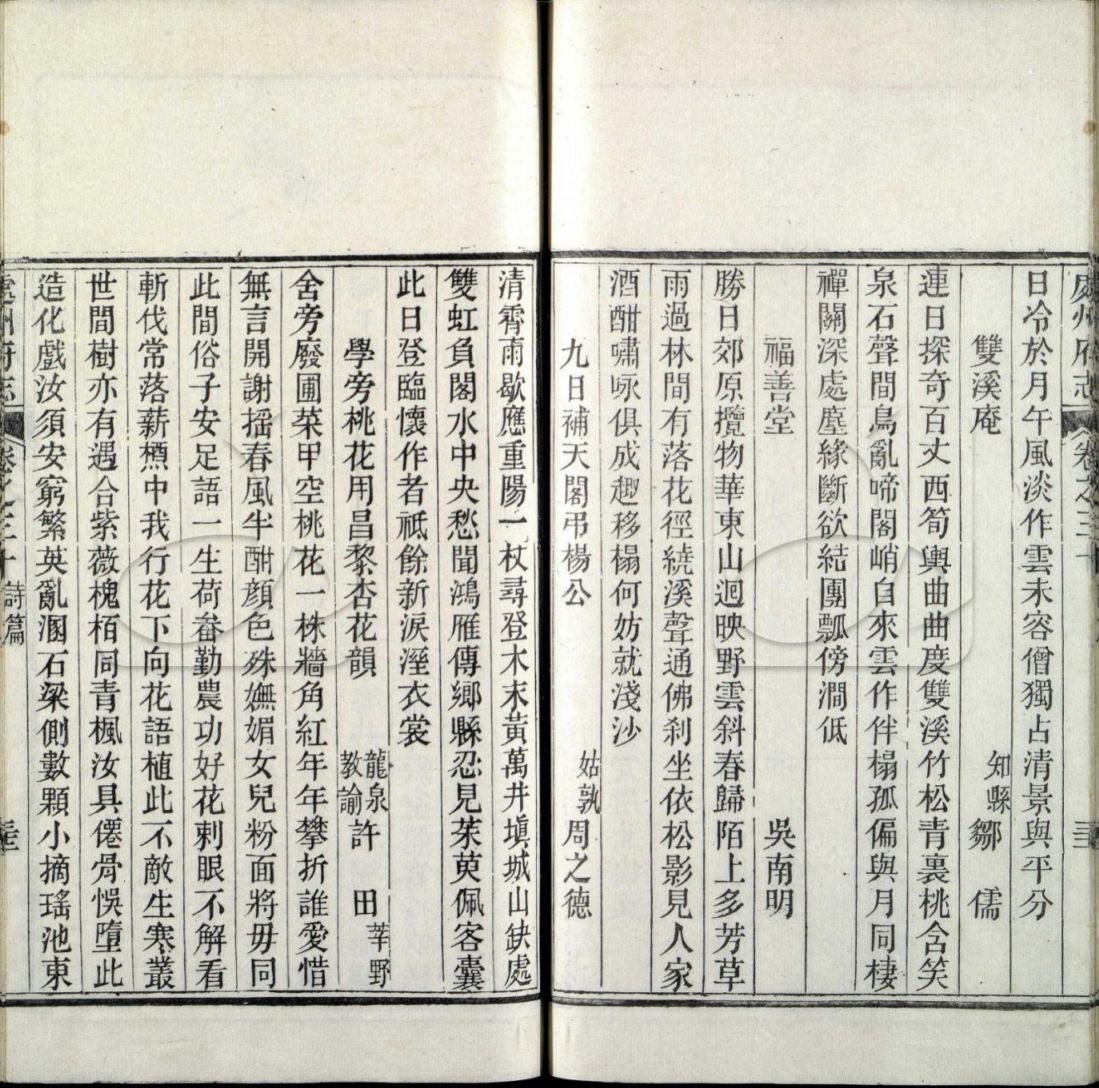 處州府志 卷之三十
日冷於月午風淡作雲未容僧獨占清景與平分
雙溪庵 知縣 鄒儒
連日探奇百丈西筍輿曲曲度雙溪竹松青裏桃含笑
泉石聲間鳥亂啼閣峭自來雲作伴榻孤偏與月同棲
禪關深處塵緣斷欲結團瓢傍澗低
福善堂 吳南明
勝日郊原攬物華東山迴映野雲斜春歸陌上多芳草
雨過林間有落花徑繞溪聲通佛刹坐依松影見人家
酒酣嘯咏俱成趣移榻何妨就淺沙
九日補天閣弔楊公 姑孰 周之德
清霽雨歇應重陽一杖尋登木末黃萬井塡城山缺處
雙虹負閣水中央愁聞鴻雁傳鄉縣忍見茱萸佩客囊
此日登臨懷作者祗餘新淚溼衣裳
學旁桃花用昌黎杏花韻 龍泉教諭 許田 莘野
舍旁廢圃菜甲空桃花一株牆角紅年年攀折誰愛惜
無言開謝搖春風半酣顏色殊嫵媚女兒粉面將毋同
此間俗子安足語一生荷畚勤農功好花刺眼不解看
斬伐常落薪槱中我行花下向花語植此不敵生寒叢
世間樹亦有遇合紫薇槐栢同青楓汝具僊骨悞墮此
造化戲汝須安窮繁英亂溷石梁側數顆小摘瑤池東
處州府志 卷之三十 詩篇